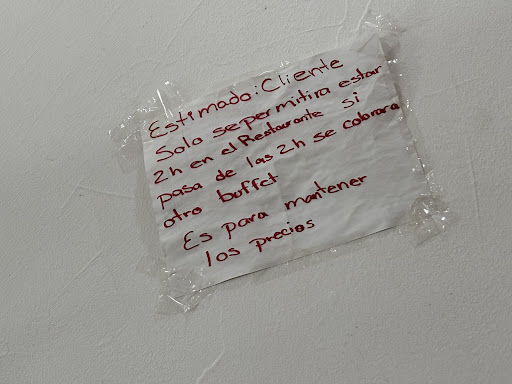 Estimado: Cliente
Solo se permitira estar
2h en el Restaurante si
pasa de las 2h se cobrara
otro buffet
Es para mantener
los precios